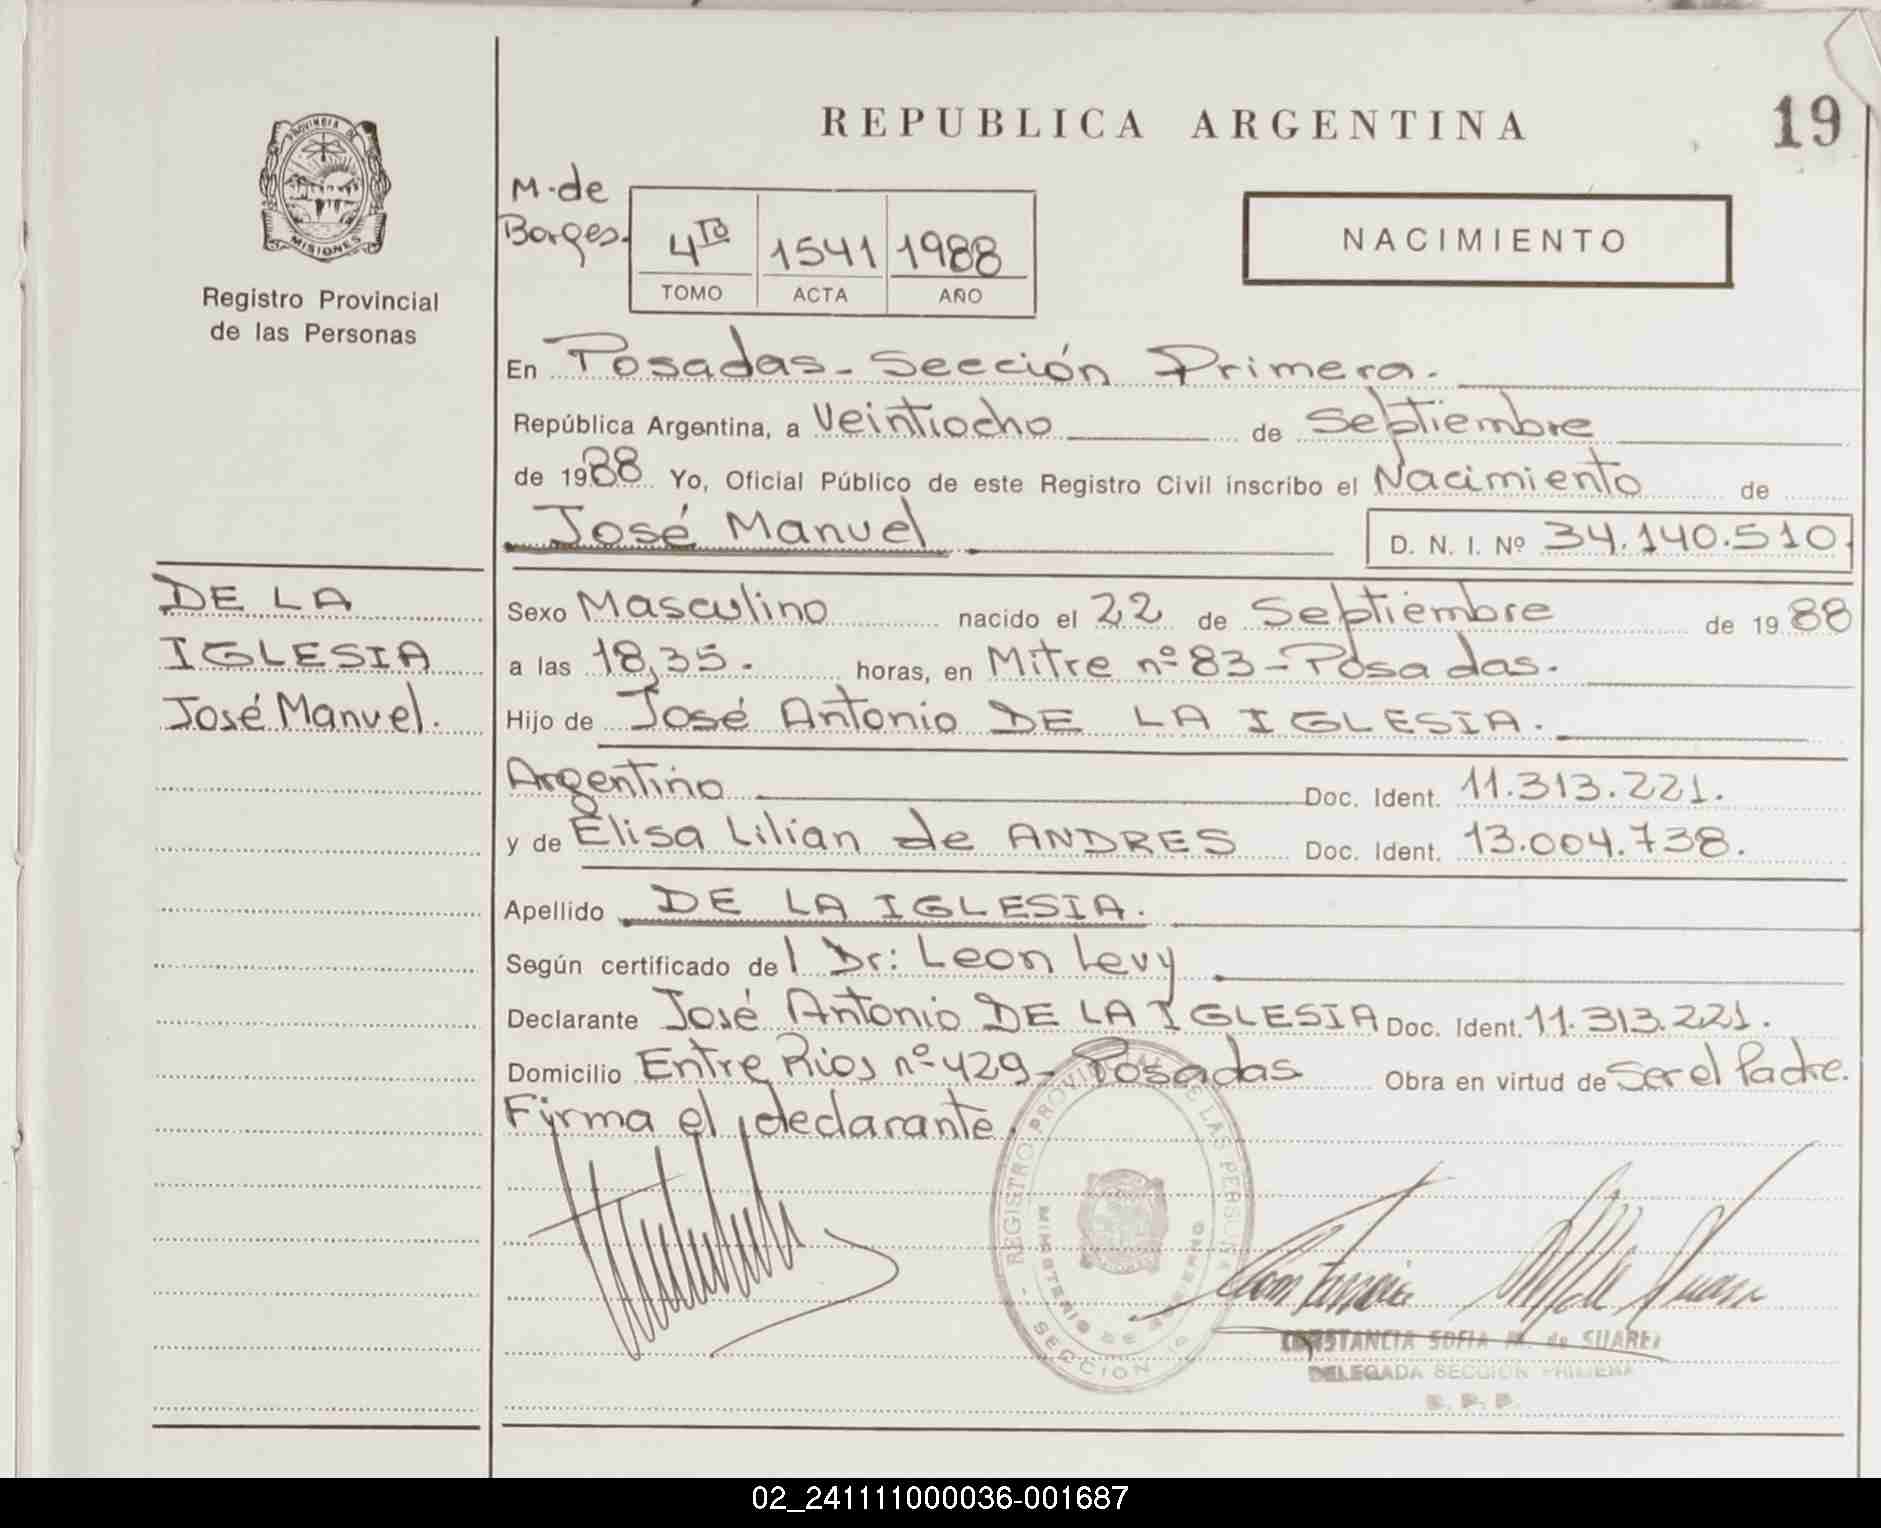 REPUBLICA ARGENTINA
19
PROVINCIA DE
MISIONES
Registro Provincial
de las Personas
M. de
Borges.
4to 1541 1988
TOMO ACTA AÑO
NACIMIENTO
En Posadas - Sección Primera.
República Argentina, a Veintiocho de Septiembre
de 1988 Yo, Oficial Público de este Registro Civil inscribo el Nacimiento de
José Manuel D. N. I. Nº 34.140.510.
DE LA
IGLESIA
José Manuel.
Sexo Masculino nacido el 22 de Septiembre de 1988
a las 18,35. horas, en Mitre nº 83 - Posadas.
Hijo de José Antonio DE LA IGLESIA.
Argentino Doc. Ident. 11.313.221.
y de Elisa Lilian de ANDRES Doc. Ident. 13.004.738.
Apellido DE LA IGLESIA.
Según certificado del Dr: Leon Levy
Declarante José Antonio DE LA IGLESIA Doc. Ident. 11.313.221.
Domicilio Entre Rios nº 429 - Posadas Obra en virtud de Ser el Padre.
Firma el declarante.
REGISTRO PROVINCIAL DE LAS PERSONAS
MINISTERIO DE GOBIERNO
SECCION
CONSTANCIA SOFIA M. de SUAREZ
DELEGADA SECCION PRIMERA
R. P. P.
02_241111000036-001687